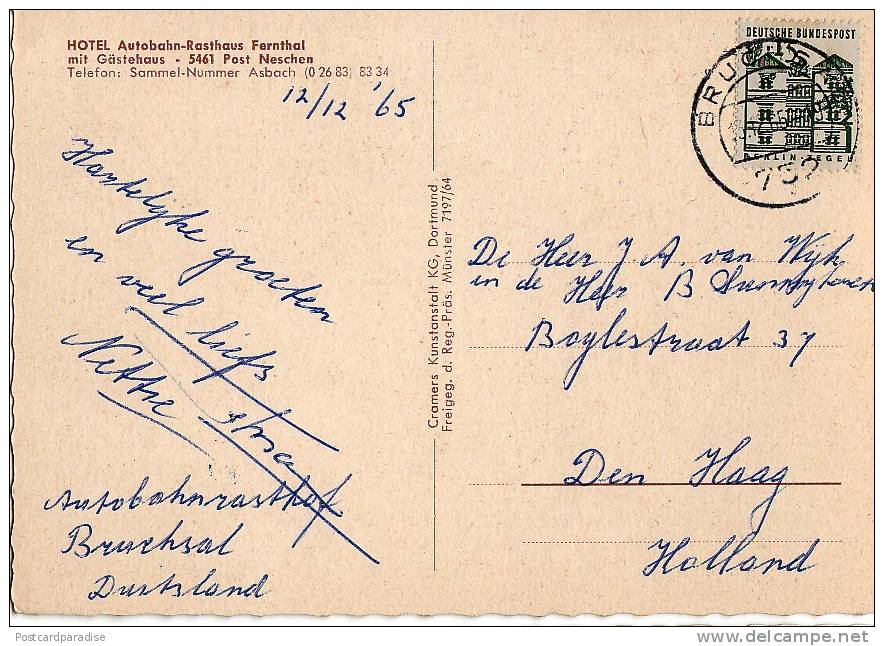 HOTEL Autobahn-Rasthaus Fernthal
mit Gästehaus - 5461 Post Neschen
Telefon: Sammel-Nummer Asbach (0 26 83) 83 34
12/12 '65
Hartelijke groeten
en veel liefs
Nettie
Autobahnrasthof
Bruchsal
Duitsland
Cramers Kunstanstalt KG, Dortmund
Freigeg. d. Reg.-Präs. Münster 7197/64
DEUTSCHE BUNDESPOST
BERLIN-TEGEL
BRUCHSAL
752
De Heer J A. van Wijk
in de Heer B
Boylestraat 37
Den Haag
Holland
Postcardparadise
www.delcampe.net